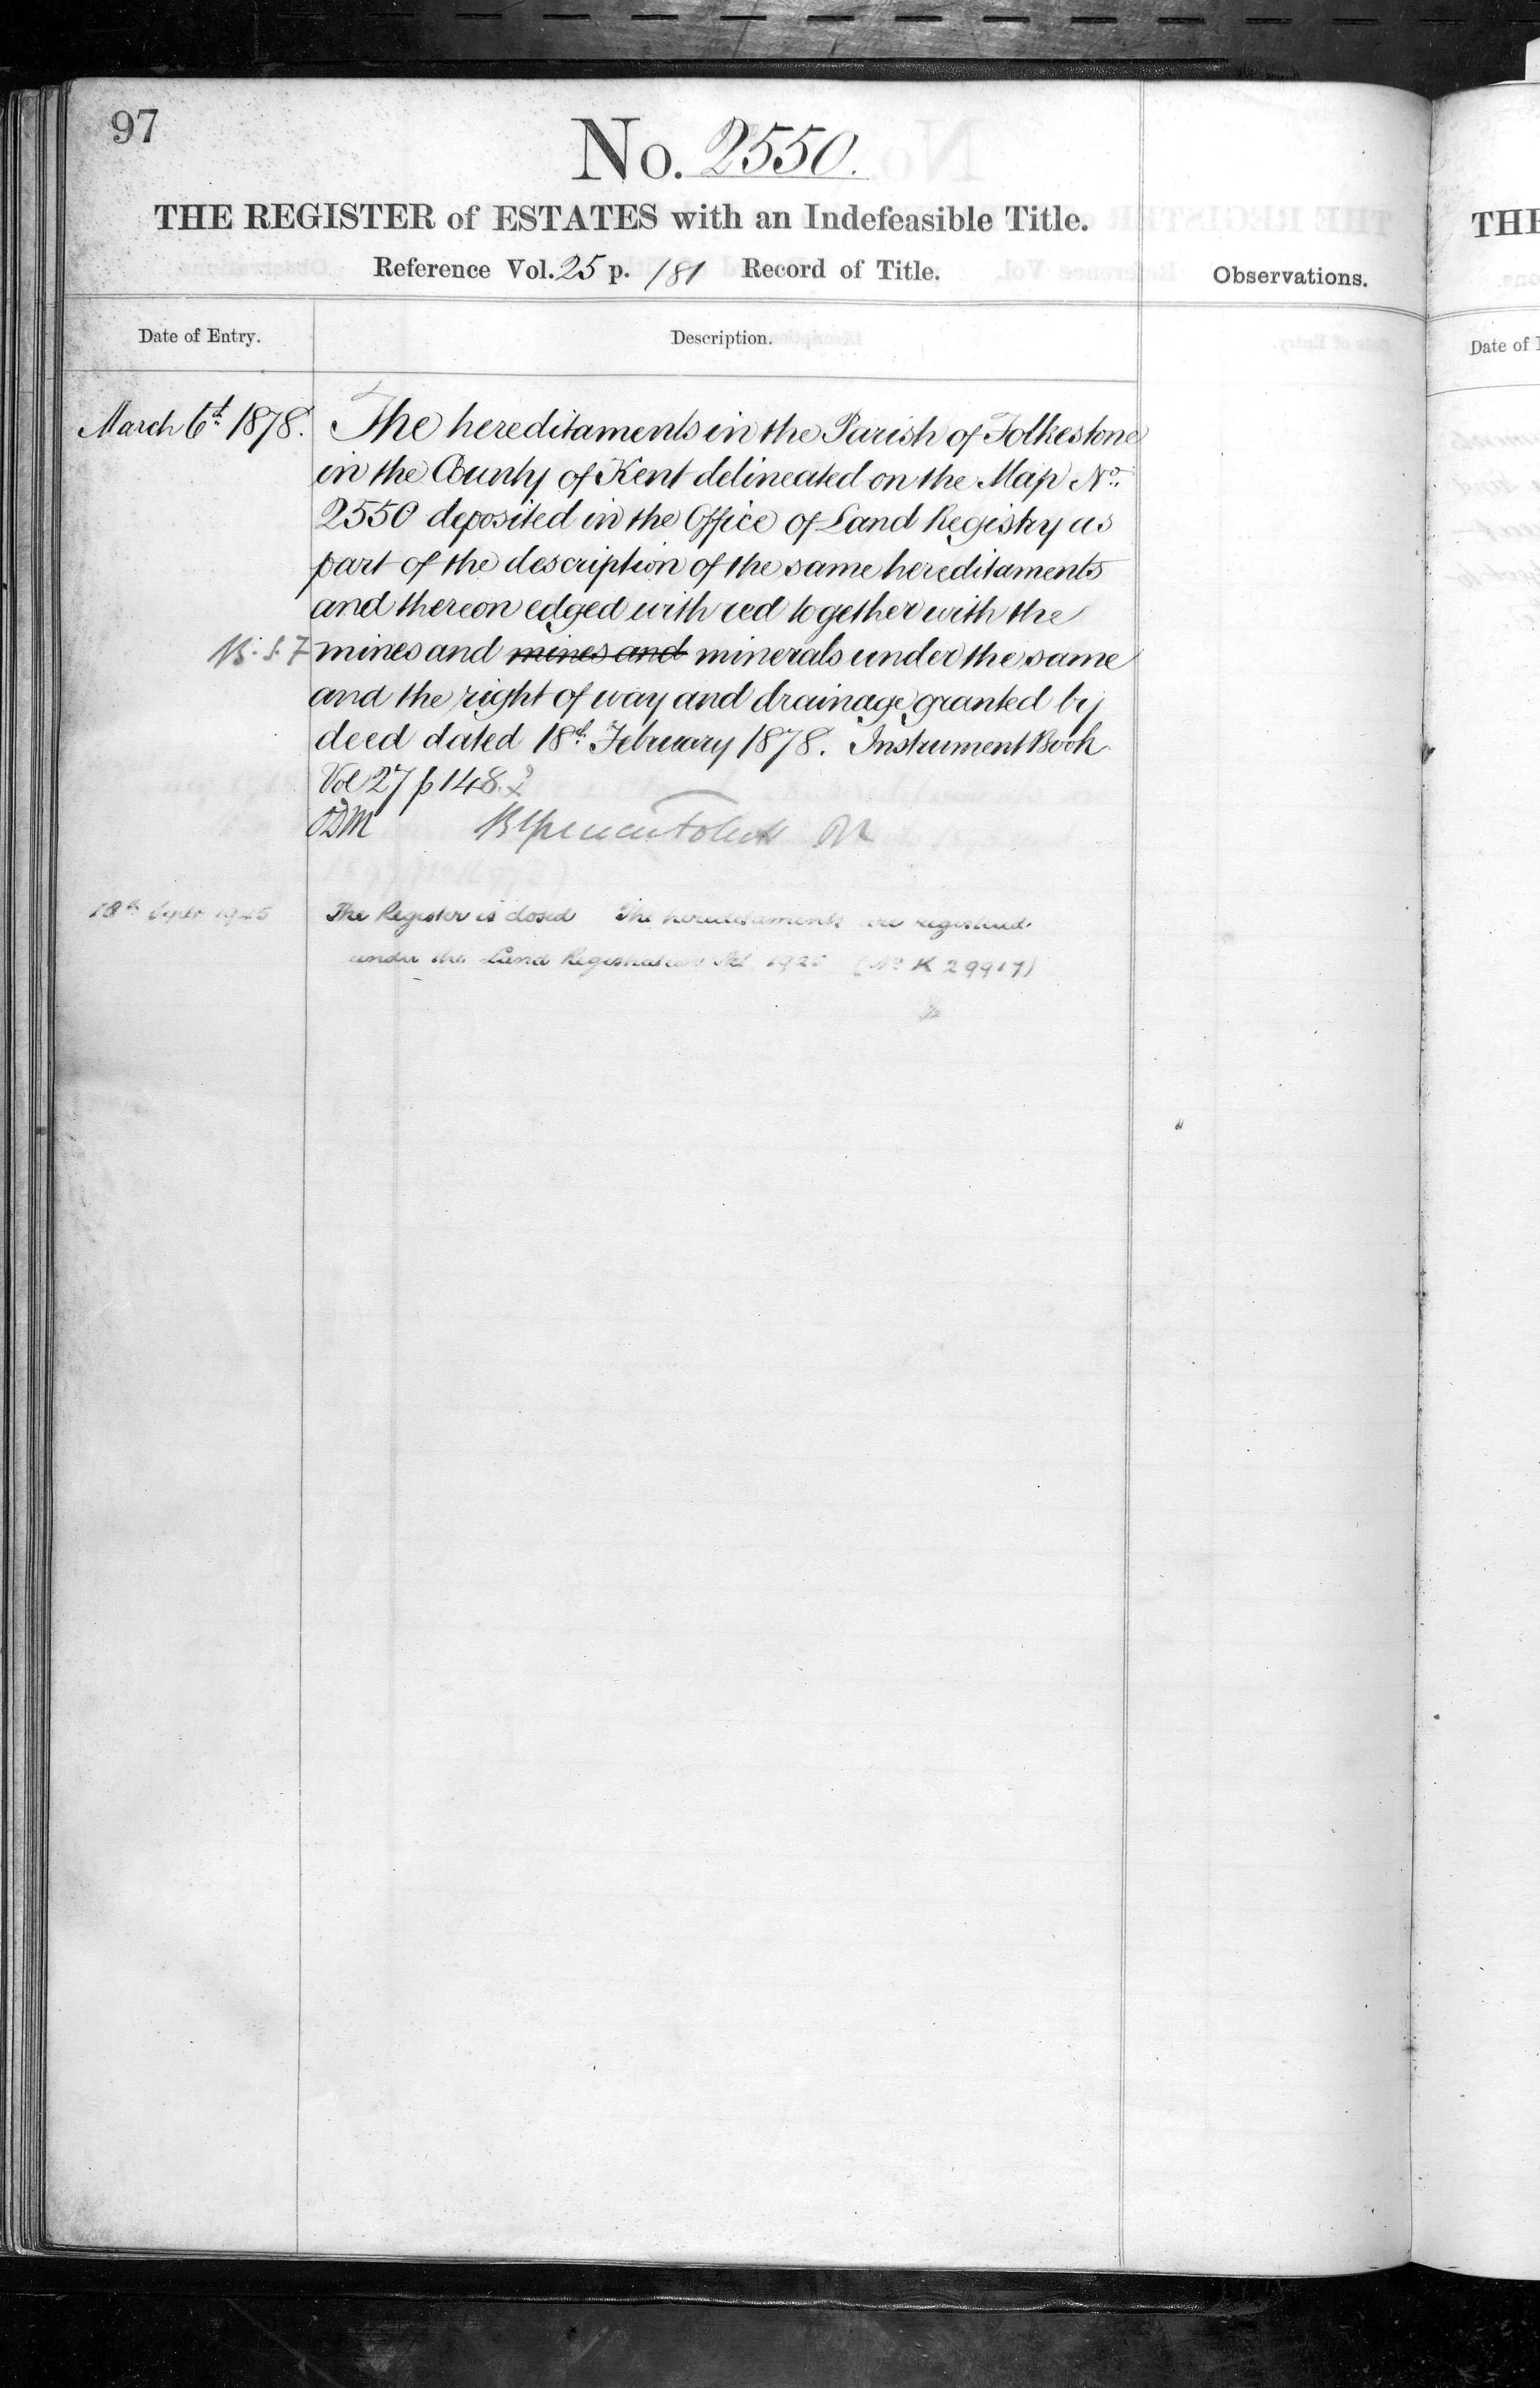 97
No. 2550.
THE REGISTER of ESTATES with an Indefeasible Title.
Reference Vol. 25 p. 181 Record of Title.
Observations.
Date of Entry.
Description.
March 6th 1878.
The hereditaments in the Parish of Folkestone
in the County of Kent delineated on the Map No.
2550 deposited in the Office of Land Registry as
part of the description of the same hereditaments
and thereon edged with red together with the
B. S. F
mines and mines and minerals under the same
and the right of way and drainage granted by
deed dated 18th February 1878. Instrument Book
Vol 27 p 148.
18th Septr 1925
The Register is closed The hereditaments are registered
under the Land Registration Act 1925 (No K 29917)
THE
Date of